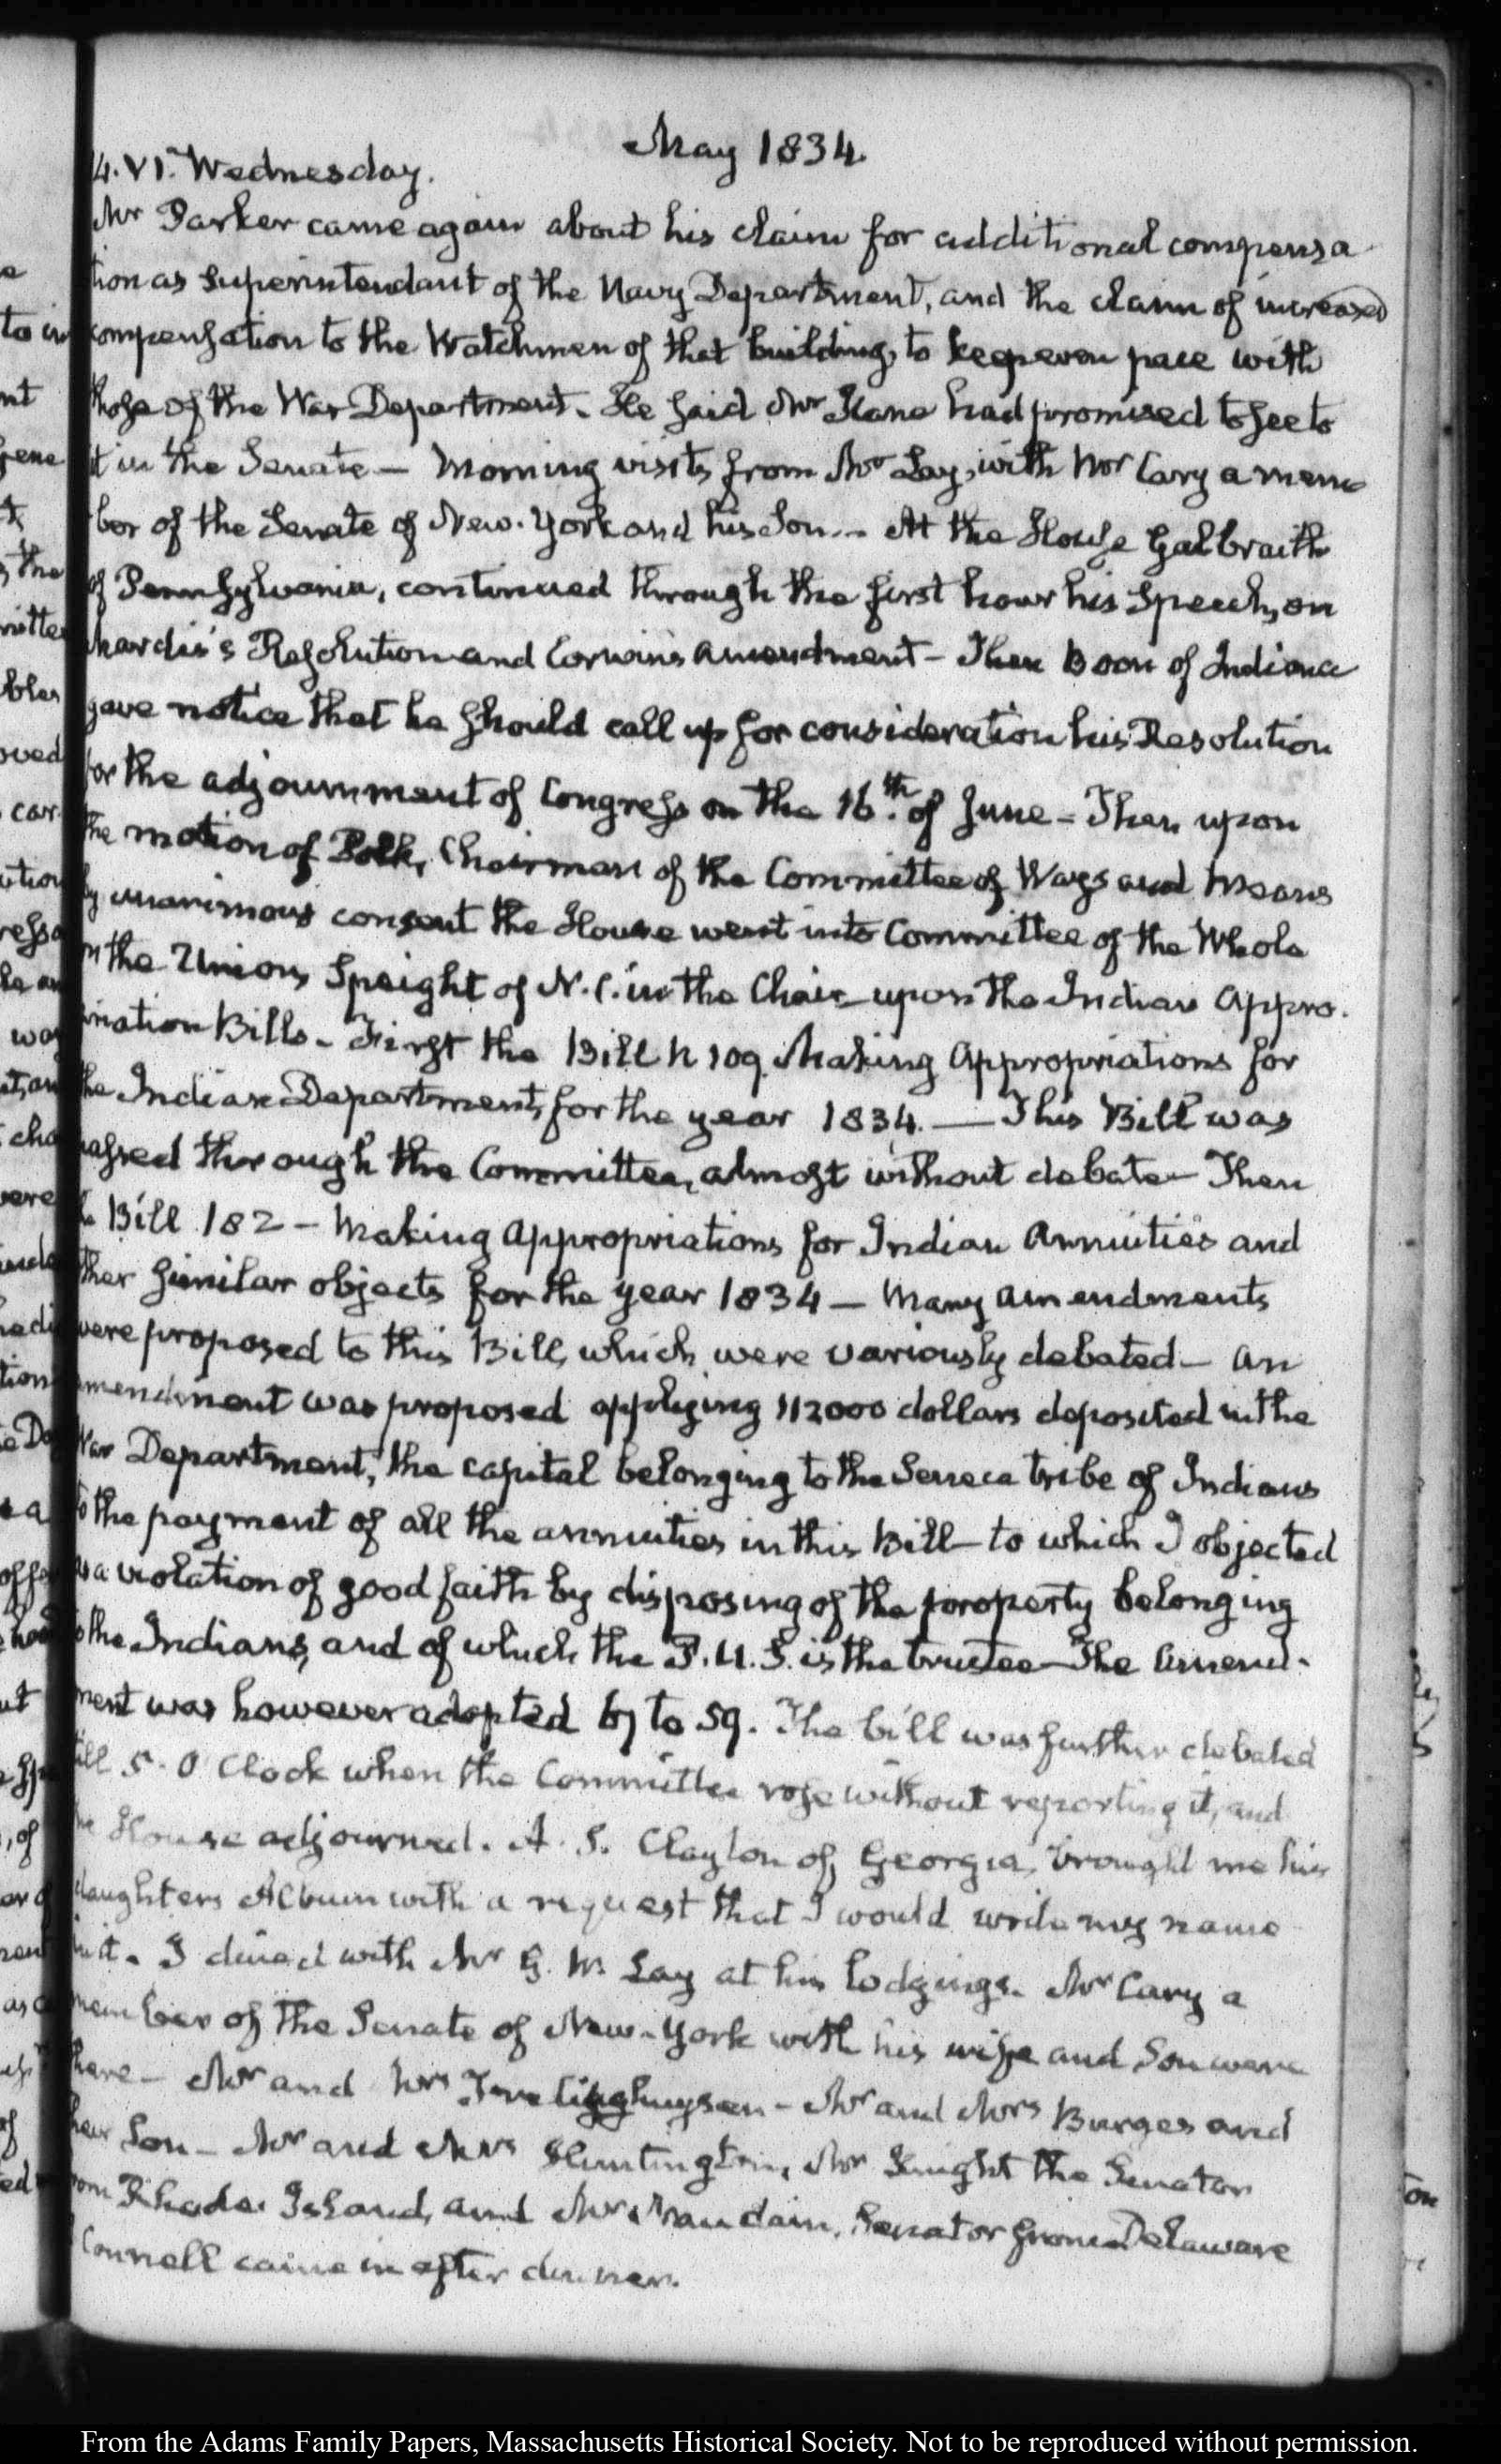 May 1834.
14. VI. Wednesday.
Mr Parker came again about his claim for additional compensa
tion as Superintendant of the Navy Department, and the claim of increased
compensation to the Watchmen of that building, to keep even pace with
those of the War Department. He said Mr Kane had promised to see to
it in the Senate — Morning visits from Mr Lay, with Mr Cary a mem
ber of the Senate of New-York and his Son.— At the House Galbraith
of Pennsylvania, continued through the first hour his Speech, on
Mardis's Resolution and Corwin's amendment — Then Boon of Indiana
gave notice that he should call up for consideration his Resolution
for the adjournment of Congress on the 16th of June — Then upon
the motion of Polk, Chairman of the Committee of Ways and Means
by unanimous consent the House went into Committee of the Whole
on the Union, Speight of N.C. in the Chair upon the Indian Appro.
priation Bills — First the Bill N 109. Making Appropriations for
the Indian Department, for the year 1834. — This Bill was
passed through the Committee, almost without debate — Then
the Bill 182 — Making Appropriations for Indian Annuities and
other similar objects for the year 1834 — Many amendments
were proposed to this Bill, which were variously debated — An
amendment was proposed applying 112000 dollars deposited in the
War Department, the capital belonging to the Seneca tribe of Indians
to the payment of all the annuities in this Bill — to which I objected
as a violation of good faith by disposing of the property belonging
to the Indians, and of which the P.U.S. is the trustee — The Amend-
ment was however adopted 67 to 59. The bill was further debated
till 5. O'Clock when the Committee rose without reporting it, and
the House adjourned. A. S. Clayton of Georgia, brought me his
daughters Album with a request that I would write my name
in it. I dined with Mr G. W. Lay at his lodgings. Mr Cary a
member of the Senate of New-York with his wife and Son were
there — Mr and Mrs Frelinghuysen — Mr and Mrs Burges and
their Son — Mr and Mrs Huntington, Mr Knight the Senator
from Rhode Island, and Mr Naudain, Senator from Delaware
Connell came in after dinner.
From the Adams Family Papers, Massachusetts Historical Society. Not to be reproduced without permission.